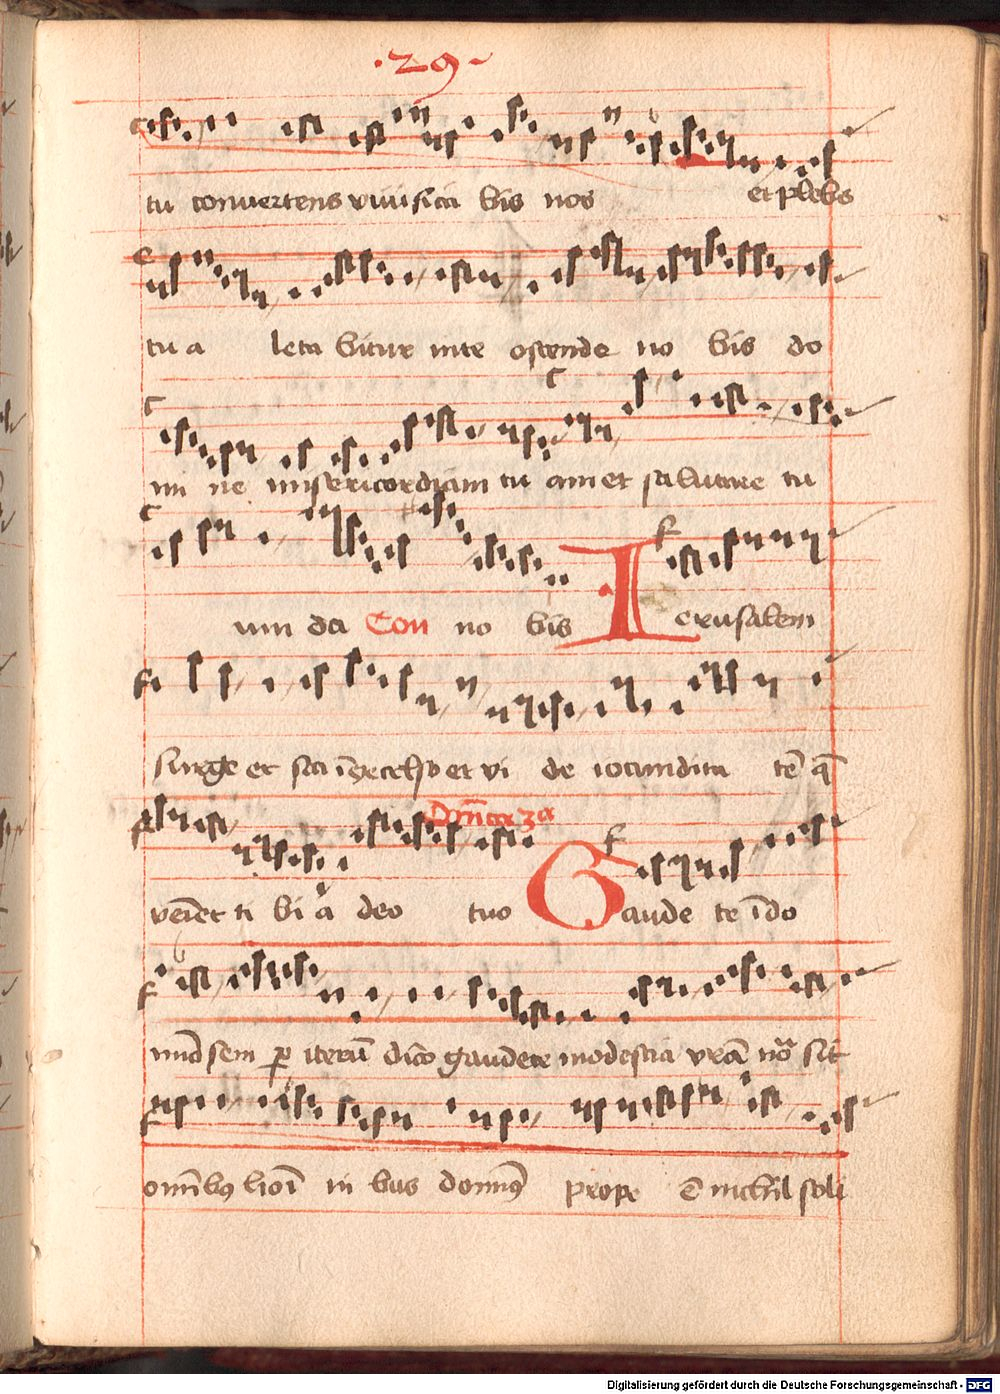 ·29·
tu convertens vivifica bis nos et plebs
tu a leta bitur in te ostende no bis do
mi ne misericordiam tu am et salutare tu
um da Con no bis Ierusalem
surge et sta i excelso et vi de iocundita tē q̄
Dn̄ica 3a
veniet ti bi a deo tuo Gaude te ī do
mino sem p iterū dico gaudete modestia vr̄a nōta sit
omībꝰ hoī in bus dominꝰ prope ē nichil soli
Digitalisierung gefördert durch die Deutsche Forschungsgemeinschaft - DFG